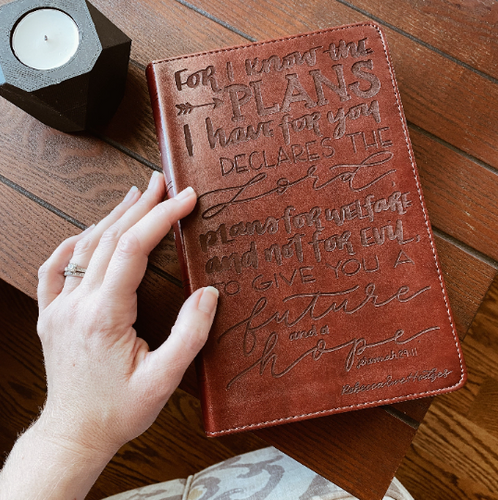 FOR I KNOW THE
PLANS
I HAVE FOR YOU
DECLARES THE
Lord
PLANS FOR WELFARE
AND NOT FOR EVIL,
TO GIVE YOU A
future
and a
hope
Jeremiah 29:11